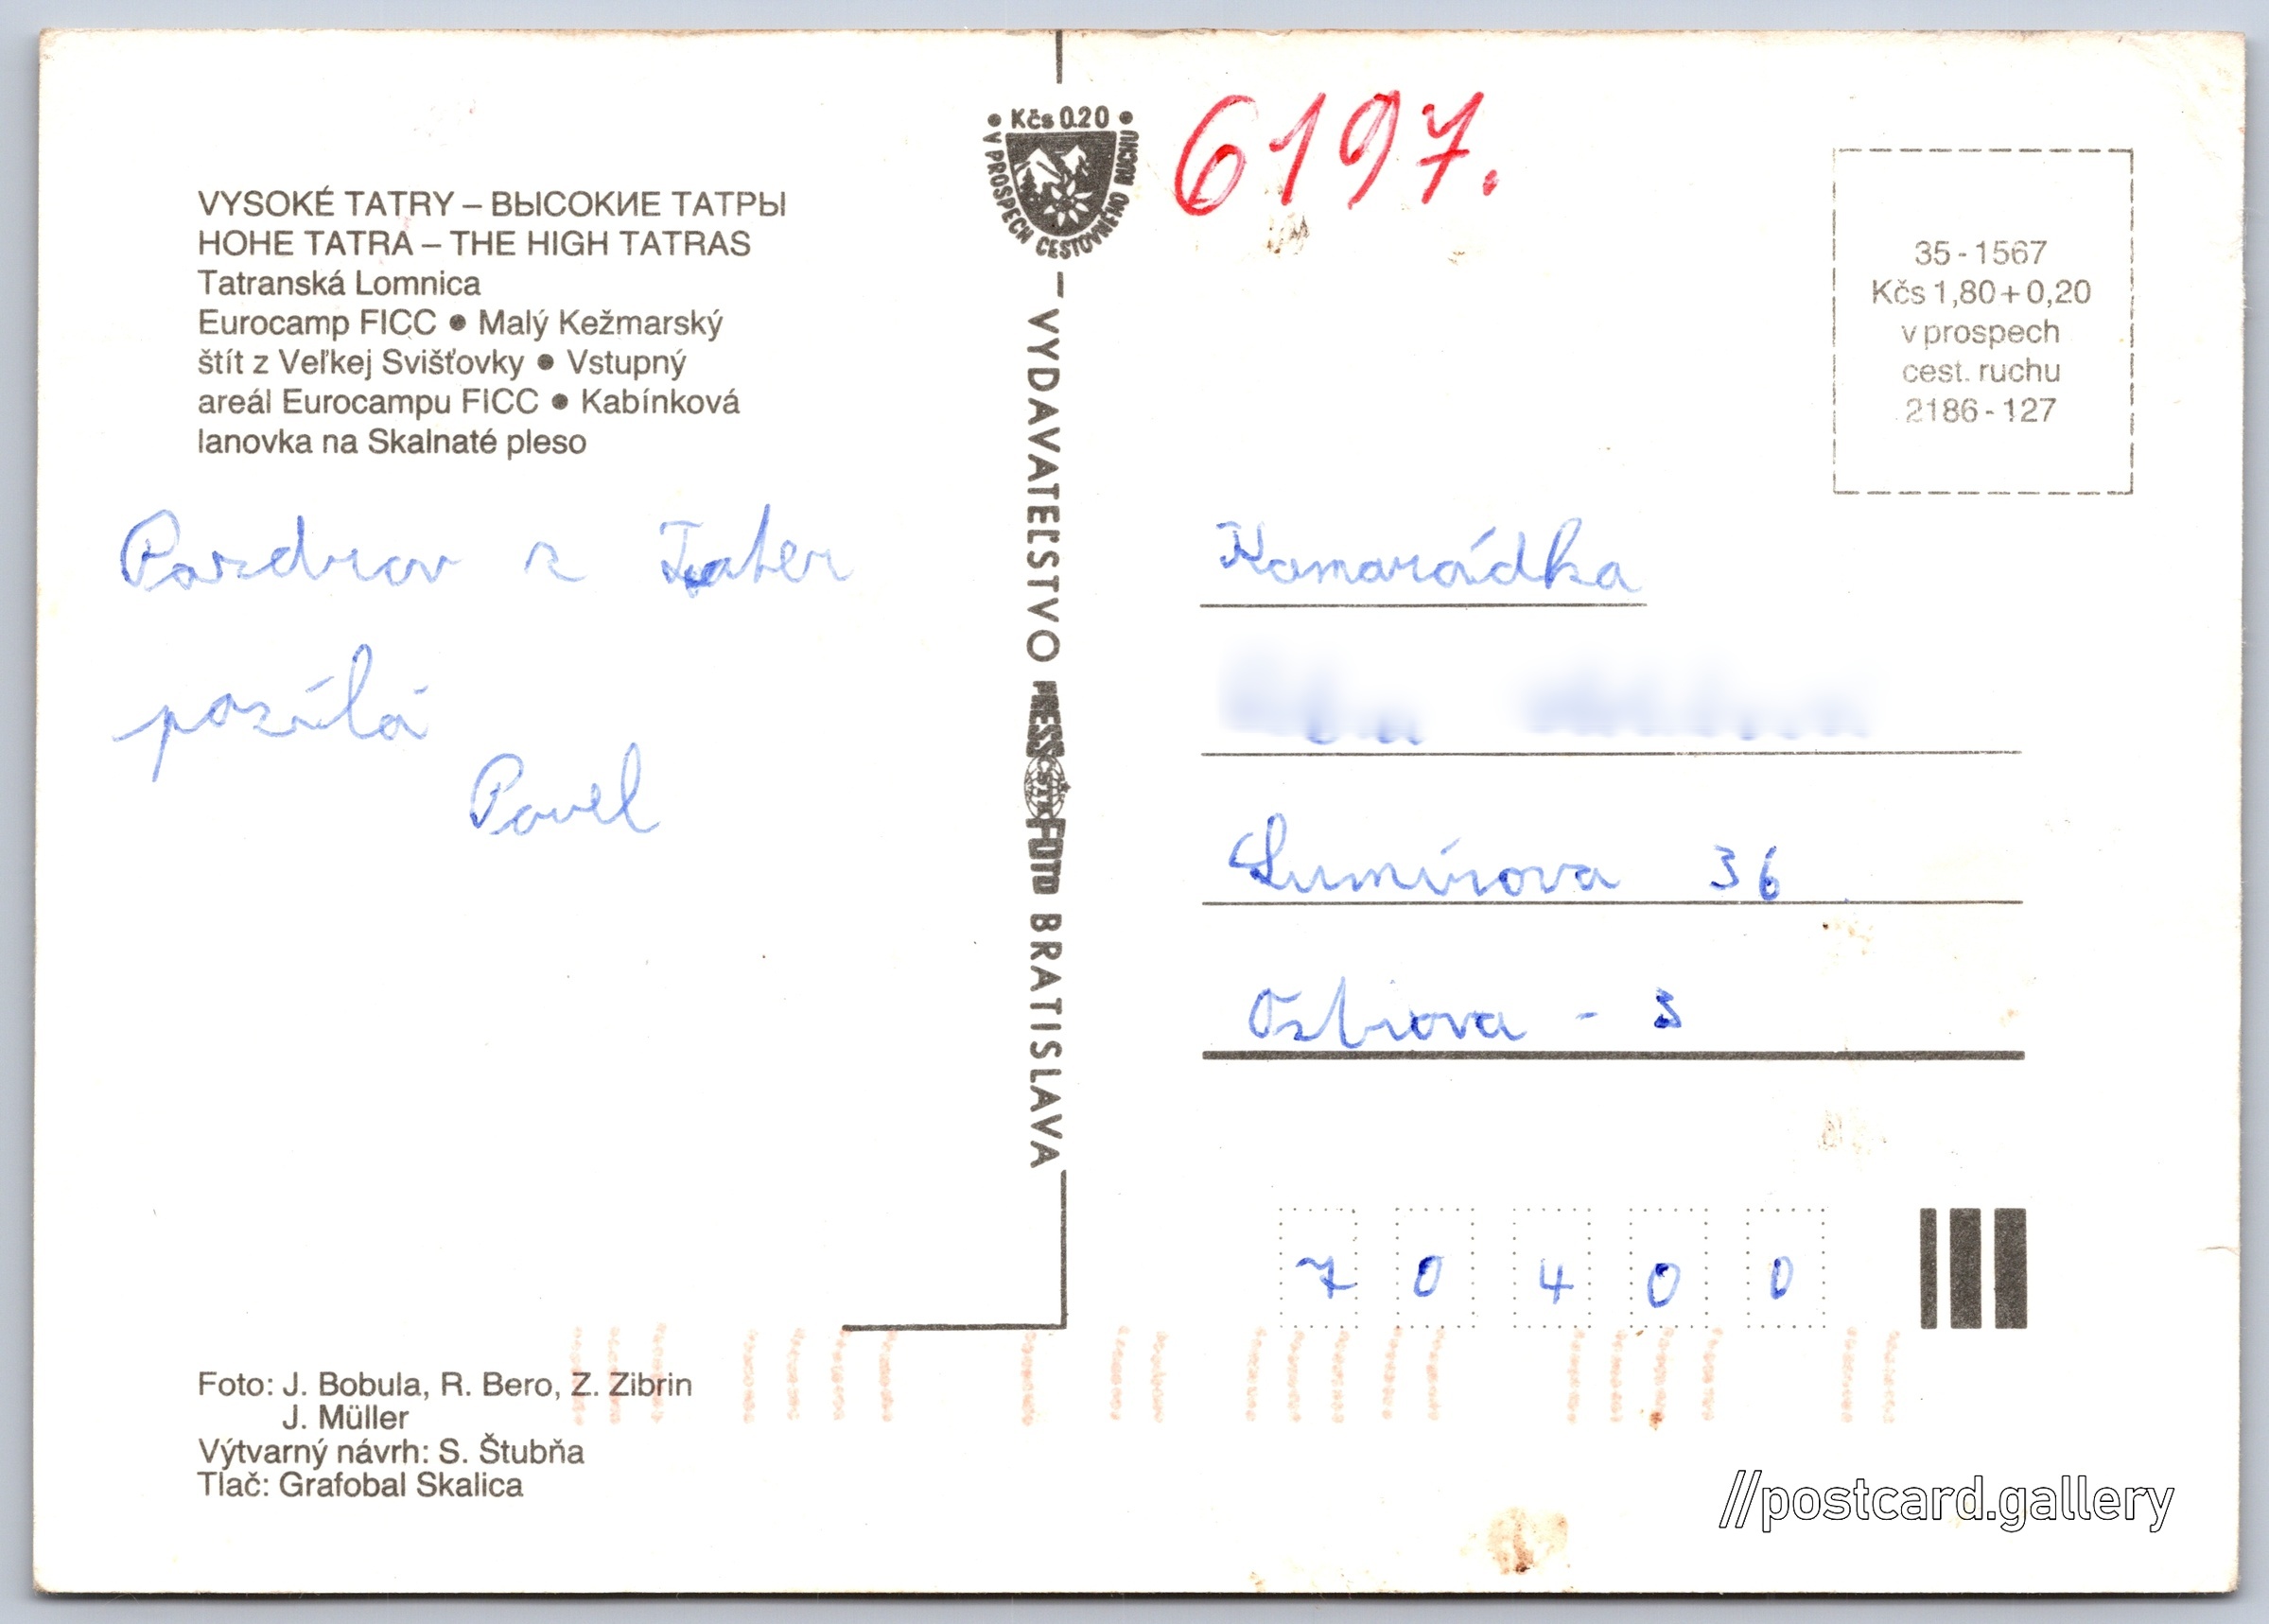 VYSOKÉ TATRY – ВЫСОКИЕ ТАТРЫ
HOHE TATRA – THE HIGH TATRAS
Tatranská Lomnica
Eurocamp FICC ● Malý Kežmarský
štít z Veľkej Svišťovky ● Vstupný
areál Eurocampu FICC ● Kabínková
lanovka na Skalnaté pleso
Pozdrav z Tater
posílá
Pavel
Foto: J. Bobula, R. Bero, Z. Zibrin
J. Müller
Výtvarný návrh: S. Štubňa
Tlač: Grafobal Skalica
• Kčs 0.20 •
V PROSPECH CESTOVNÉHO RUCHU
VYDAVATEĽSTVO PRESSFOTO BRATISLAVA
ČSTK
6197.
35-1567
Kčs 1,80+0,20
v prospech
cest. ruchu
2186-127
Kamarádka
Lumírova 36
Ostrava - 3
70400
//postcard.gallery